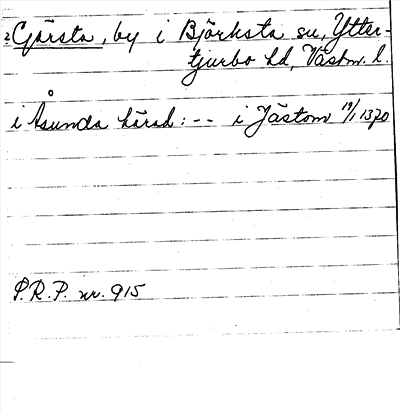 2 Gjärsta, by i Björksta sn, Ytter-
tjurbo hd, Västm. l.
i Åsunda härad: -- i Jästom 17/1 1370
P.R.P. nr. 915